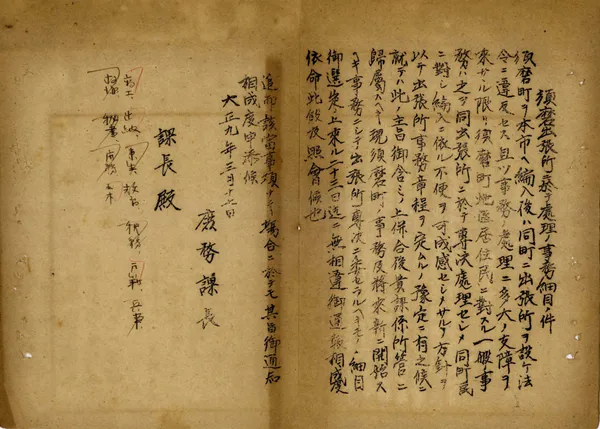 須磨出張所ニ於テ処理ノ事務細目ノ件
須磨町ヲ本市ヘ編入後ハ同町ニ出張所ヲ設ケ法
令ニ違反セス且ツ事務処理ニ多大ノ支障ヲ
来サル限リ須磨町地区居住民ニ対スル一般ノ事
務ハ之ヲ同出張所ニ於テ専決処理セシメ同町民
ニ対シ編入ニ依ル不便ヲ可成感セシメサル方針ヲ
以テ出張所事務章程ヲ定ムルノ予定ニ有之候ニ
就テハ此ノ主旨御含ミノ上保合後貴課係所管ニ
歸屬スヘキ現須磨町ノ事務及將來新ニ開始ス
ヘキ事務ニシテ出張所専決ニ委セラルヘキモノノ細目
御選定ノ上來ル二十三日迄ニ無相違御通報相成度
依命此段及照会候也
追而該当事項ナキ場合ニ於テモ其旨御通知
相成度申添候
大正九年三月十七日
庶務課長
課長殿